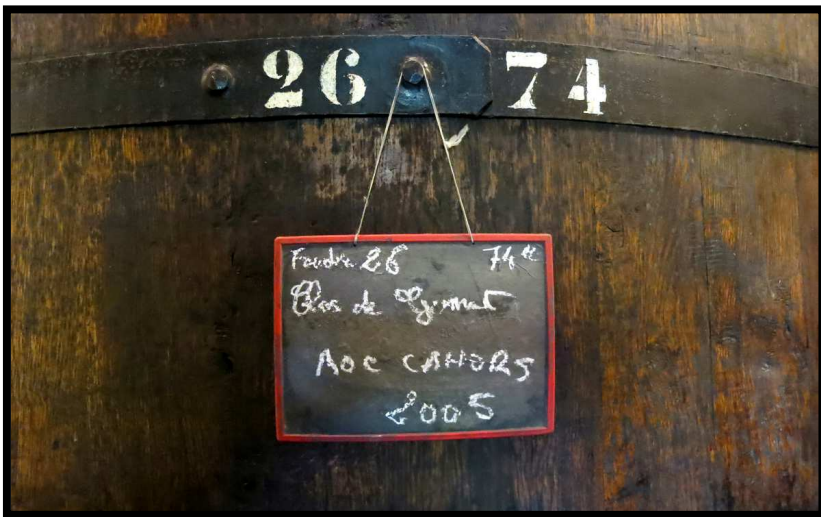 26 74
Foudre 26 74 H
Clos de
AOC CAHORS
2005